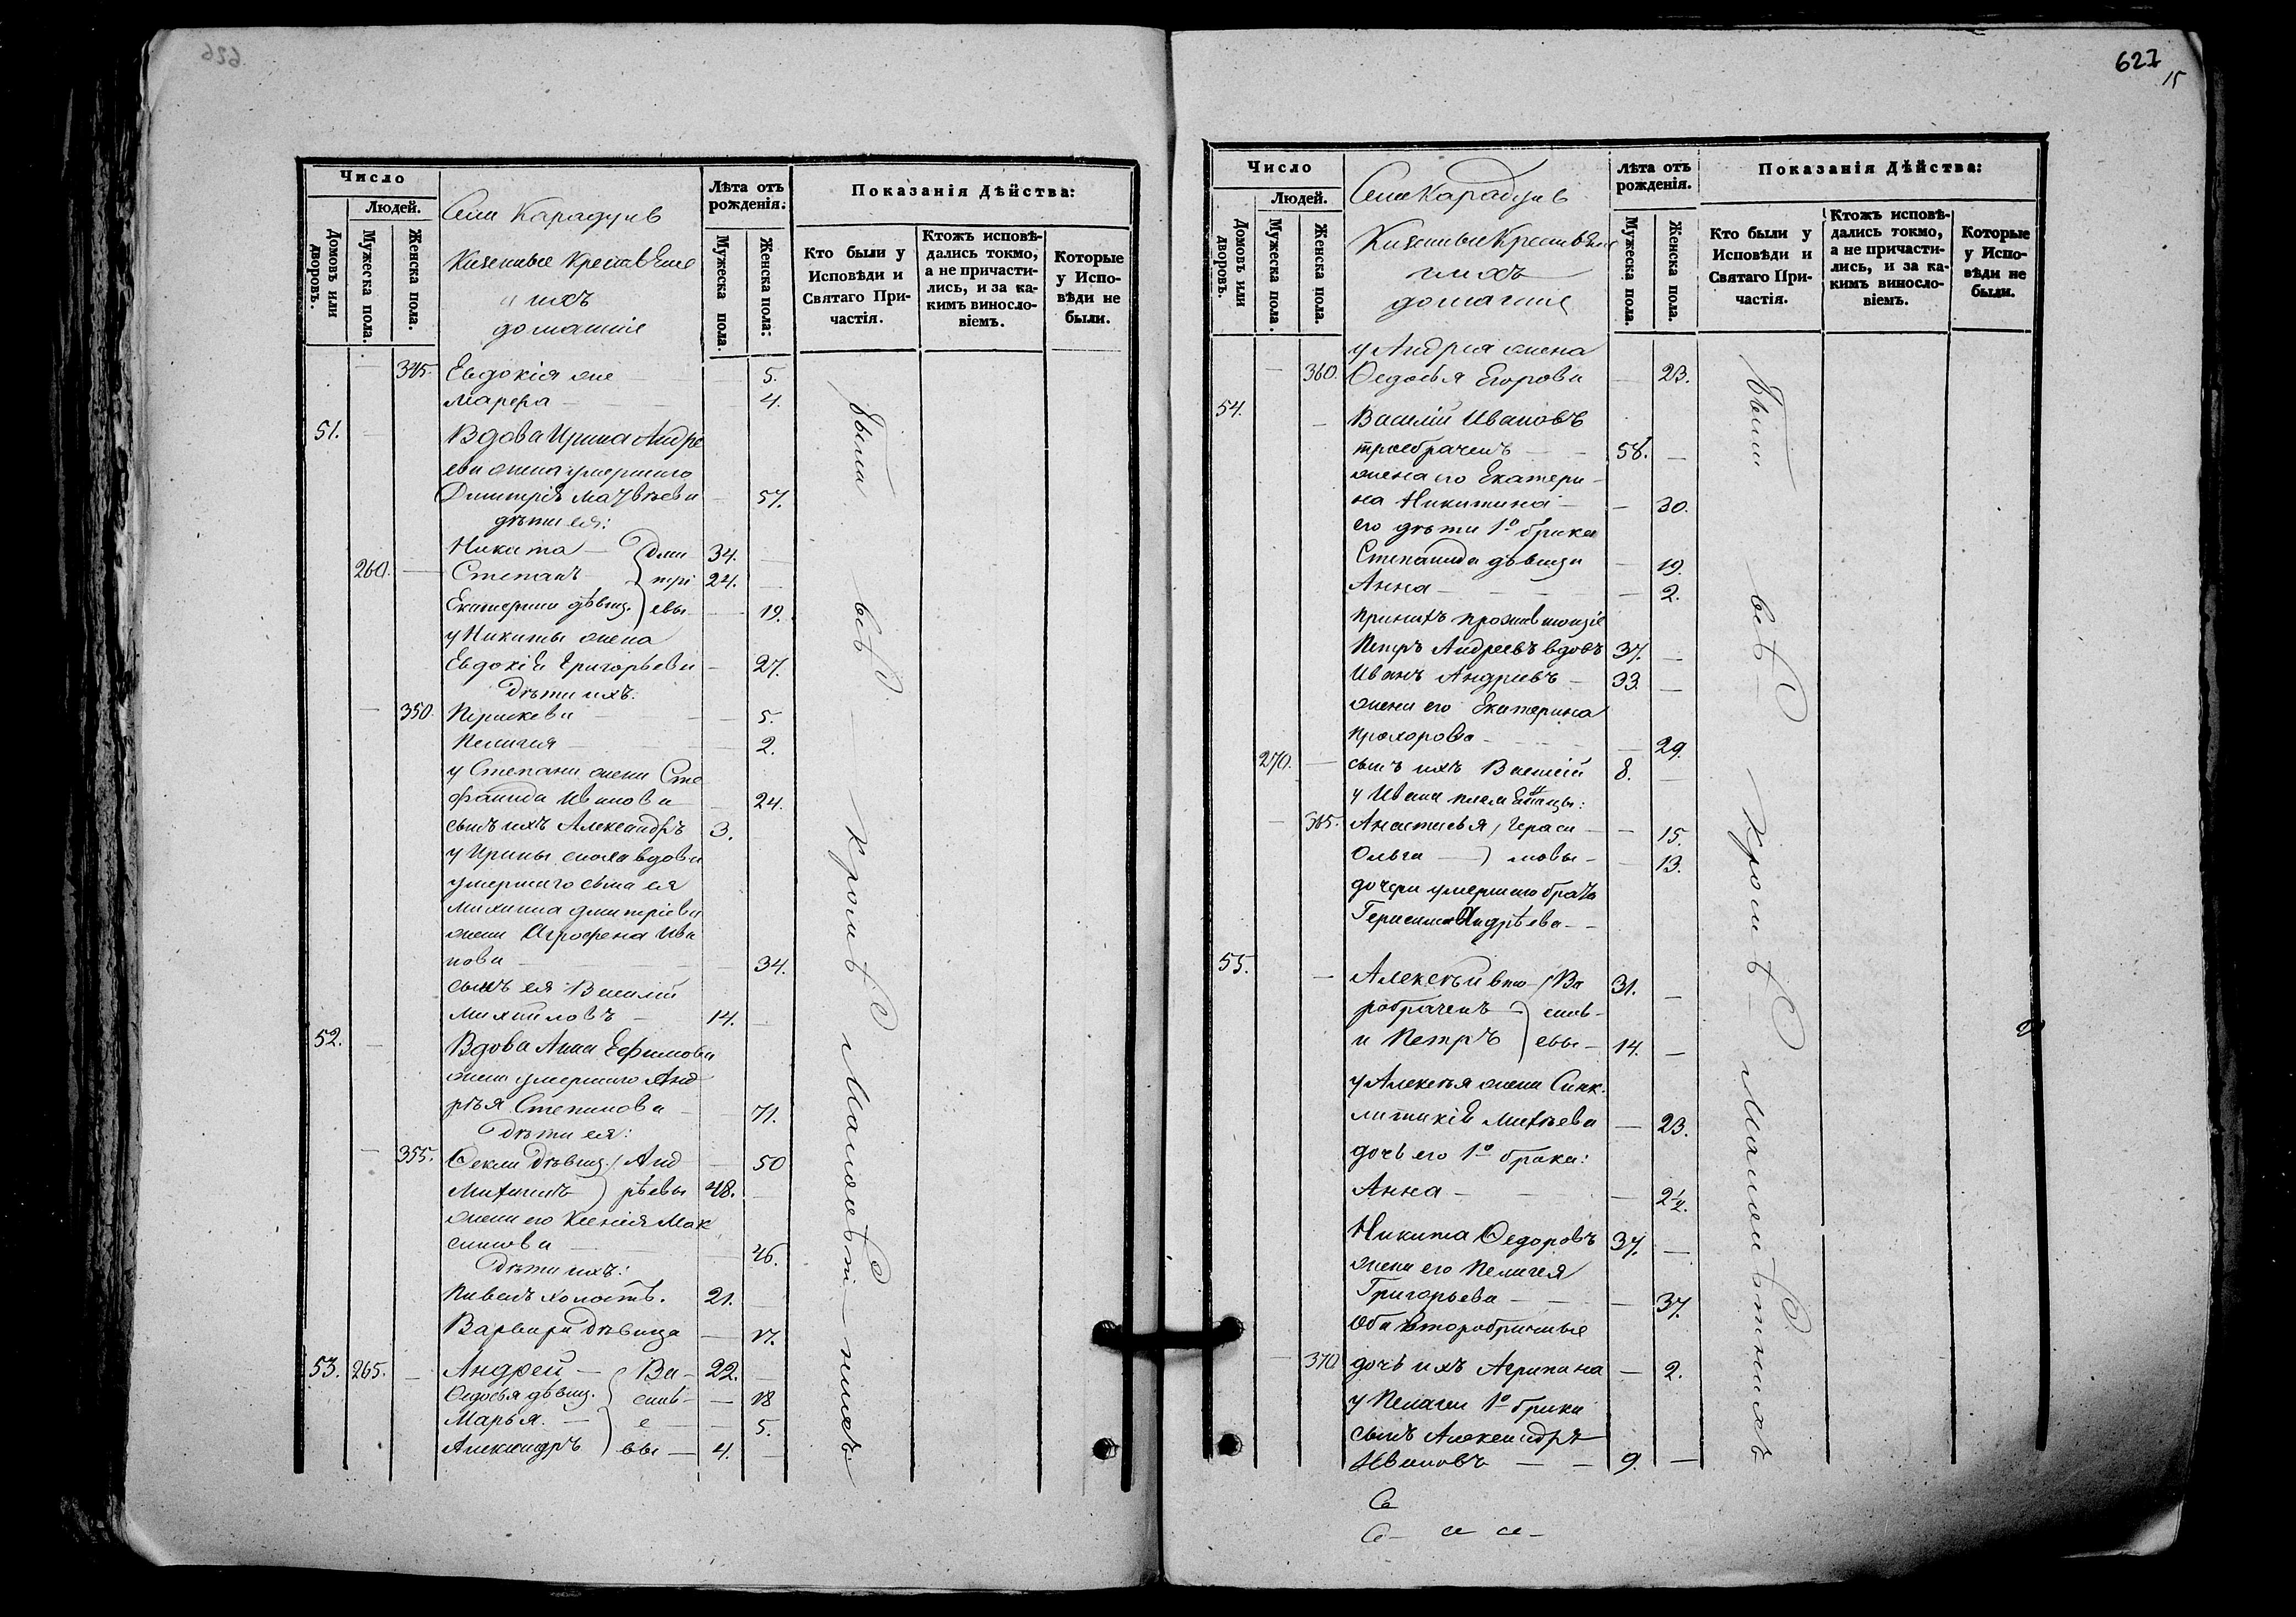 626
Число
Людей.
Домовъ или дворовъ.
Мужеска пола.
Женска пола.
Села Карадулъ
Казенные Крестьяне
и ихъ
домашніе
Лѣта отъ рожденія:
Мужеска пола.
Женска пола:
Показанія Дѣйства:
Кто были у Исповѣди и Святаго Причастія.
Ктожъ исповѣдались токмо, а не причастились, и за какимъ винословіемъ.
Которые у Исповѣди не были.
345. Евдокія 5.
Марѳа — 4.
51. — Вдова Ирина Андре
ева жена умершаго
Димитрія Матвѣева — 57.
дѣти ея:
Никита — Дми 34. —
260. — Степанъ трі 24. —
Екатерина дѣвиц. евы — 19.
у Никиты жена
Евдокія Григорьева — 27.
Дѣти ихъ:
— 350. Параскева — 5.
Пелагея — 2.
у Степана жена Сте
фанида Иванова — 24.
сынъ ихъ Александръ 3.
у Ирины сноха вдова
умершаго сына ея
Михаила Дмитріева
жена Агрофена Ива
нова — 34.
сынъ ея Василій
Михайловъ — 14. —
52. — Вдова Анна Ефимова
жена умершаго Анд
рѣя Степанова — 71.
Дѣти ея:
— 355. Ѳекла дѣвиц. Анд — 50
Михаилъ рѣевы 48. —
жена его Ксенія Мак
симова — 46.
Дѣти ихъ:
Павелъ холостъ. 21. —
Варвара дѣвица — 17.
53. 265. — Андрей — Ва — 22. —
Ѳедосья дѣвиц. силь — — 18
Марья. — е — 5.
Александръ вы — 4. —
Были всѣ — кромѣ малолѣтнихъ
627
15
Число
Людей.
Домовъ или дворовъ.
Мужеска пола.
Женска пола.
Села Карадулъ
Казенные Крестьяне
и ихъ
домашніе
Лѣта отъ рожденія.
Мужеска пола.
Женска пола.
Показанія Дѣйства:
Кто были у Исповѣди и Святаго Причастія.
Ктожъ исповѣдались токмо, а не причастились, и за какимъ винословіемъ.
Которые у Исповѣди не были.
у Андрея жена
— 360. Ѳедосья Егорова — 23.
54. Василій Ивановъ
троебраченъ — 58. —
жена его Екатери
на Никитина — — 30.
его дѣти 1го брака
Степанида дѣвица — 19.
Анна — — 2.
при нихъ проживающіе
Петръ Андреевъ вдовъ 37. —
Иванъ Андреевъ — 33. —
жена его Екатерина
Прохорова — — 29.
270. — сынъ ихъ Василій 8. —
у Ивана племянницы:
— 365. Анастасья Гераси — — 15.
Ольга — мовы — — 13.
дочери умершаго брата
Герасима Андрѣева —
55. — Алексѣй вто — Ва 31. —
робраченъ — силь —
и Петръ евы — 14. —
у Алексѣя жена Синк
литикія Михѣева — 23.
дочь его 1го брака:
Анна — — 2½.
Никита Ѳедоровъ 37. —
жена его Пелагея
Григорьева — — 37.
Оба второбрачные
— 370 дочь ихъ Агрипана — 2.
у Пелагеи 1го брака
сынъ Александръ
Ивановъ — 9. —
Были всѣ — кромѣ — малолѣтнихъ